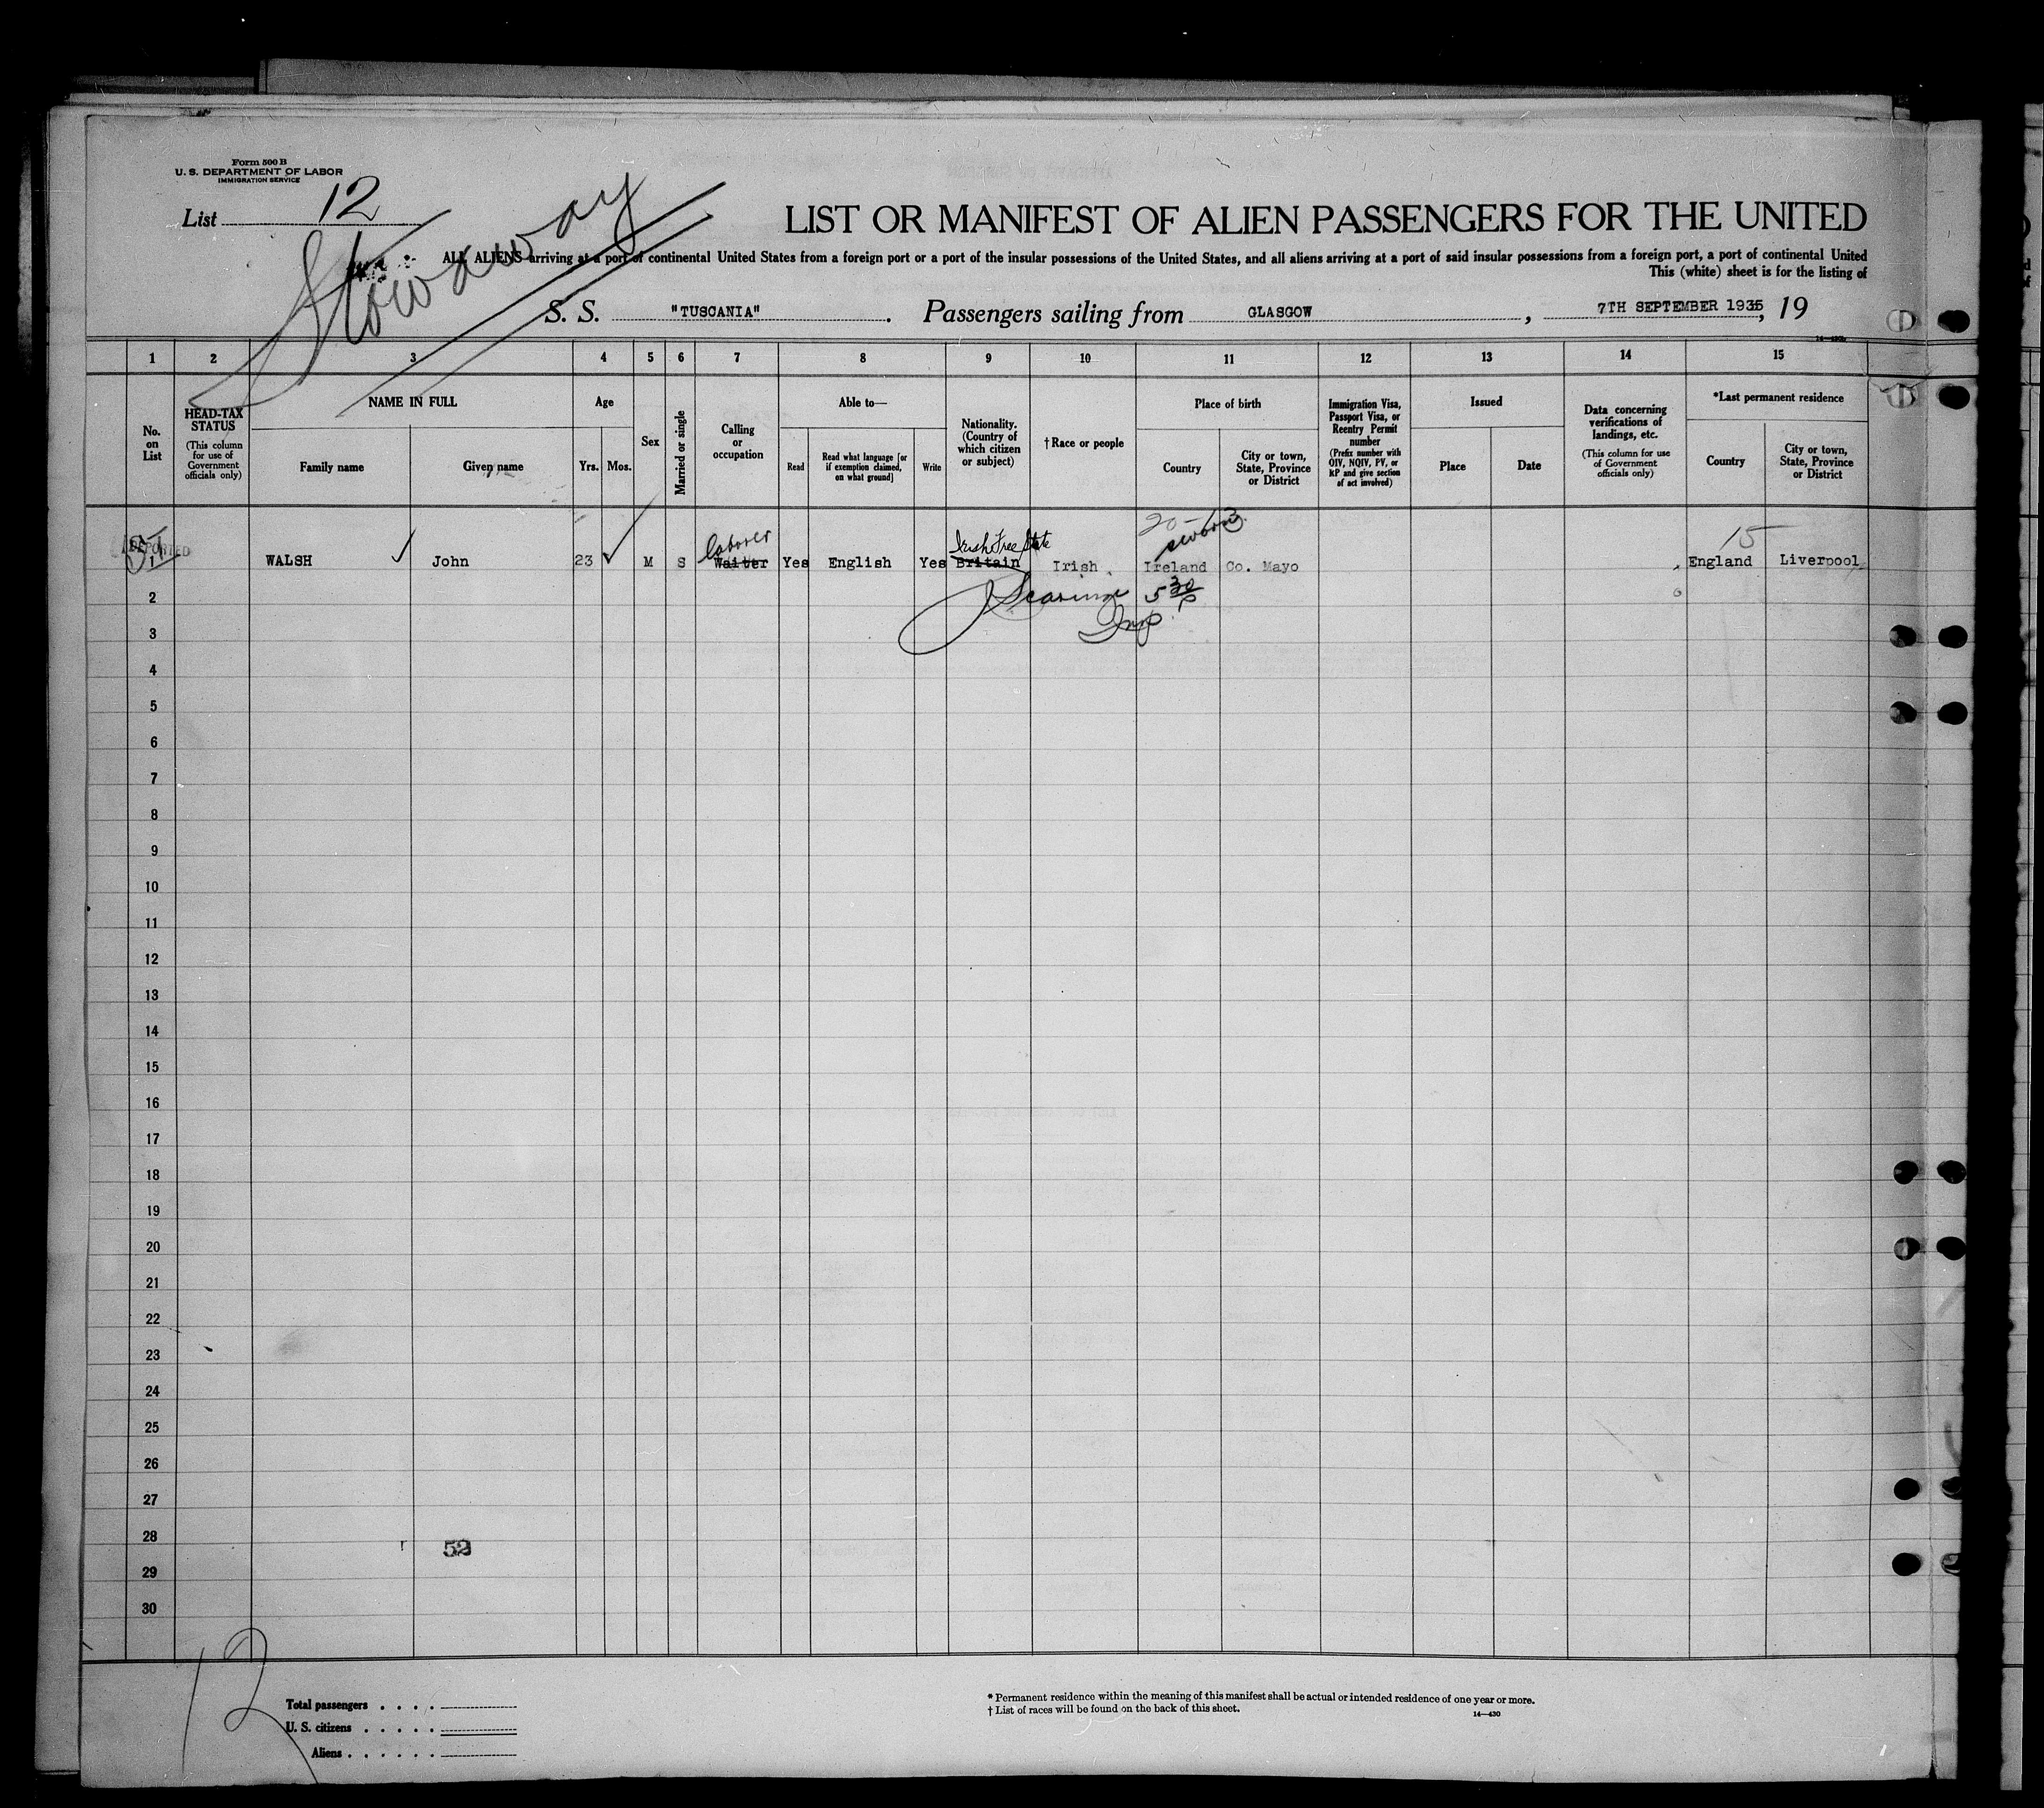 Form 500 B
U. S. DEPARTMENT OF LABOR
IMMIGRATION SERVICE
List 12
Stowaway
LIST OR MANIFEST OF ALIEN PASSENGERS FOR THE UNITED
ALL ALIENS arriving at a port of continental United States from a foreign port or a port of the insular possessions of the United States, and all aliens arriving at a port of said insular possessions from a foreign port, a port of continental United
This (white) sheet is for the listing of
S. S. "TUSCANIA". Passengers sailing from GLASGOW, 7TH SEPTEMBER 1935, 19
14-430
1 2 3 4 5 6 7 8 9 10 11 12 13 14 15
No. on List
HEAD-TAX STATUS
(This column for use of Government officials only)
NAME IN FULL
Family name
Given name
Age
Yrs. Mos.
Sex
Married or single
Calling or occupation
Able to—
Read
Read what language [or if exemption claimed, on what ground]
Write
Nationality. (Country of which citizen or subject)
†Race or people
Place of birth
Country
City or town, State, Province or District
Immigration Visa, Passport Visa, or Reentry Permit number
(Prefix number with QIV, NQIV, PV, or RP and give section of act involved)
Issued
Place
Date
Data concerning verifications of landings, etc.
(This column for use of Government officials only)
*Last permanent residence
Country
City or town, State, Province or District
DEPORTED
laborer Irish Free State 15
1 WALSH John 23 M S Waiter Yes English Yes Britain Irish Ireland Co. Mayo England Liverpool
2
5 30
3
4
5
6
7
8
9
10
11
12
13
14
15
16
17
18
19
20
21
22
23
24
25
26
27
28
52
29
30
12
Total passengers . . . .
U. S. citizens . . . . .
Aliens . . . . . .
* Permanent residence within the meaning of this manifest shall be actual or intended residence of one year or more.
† List of races will be found on the back of this sheet.
14—430